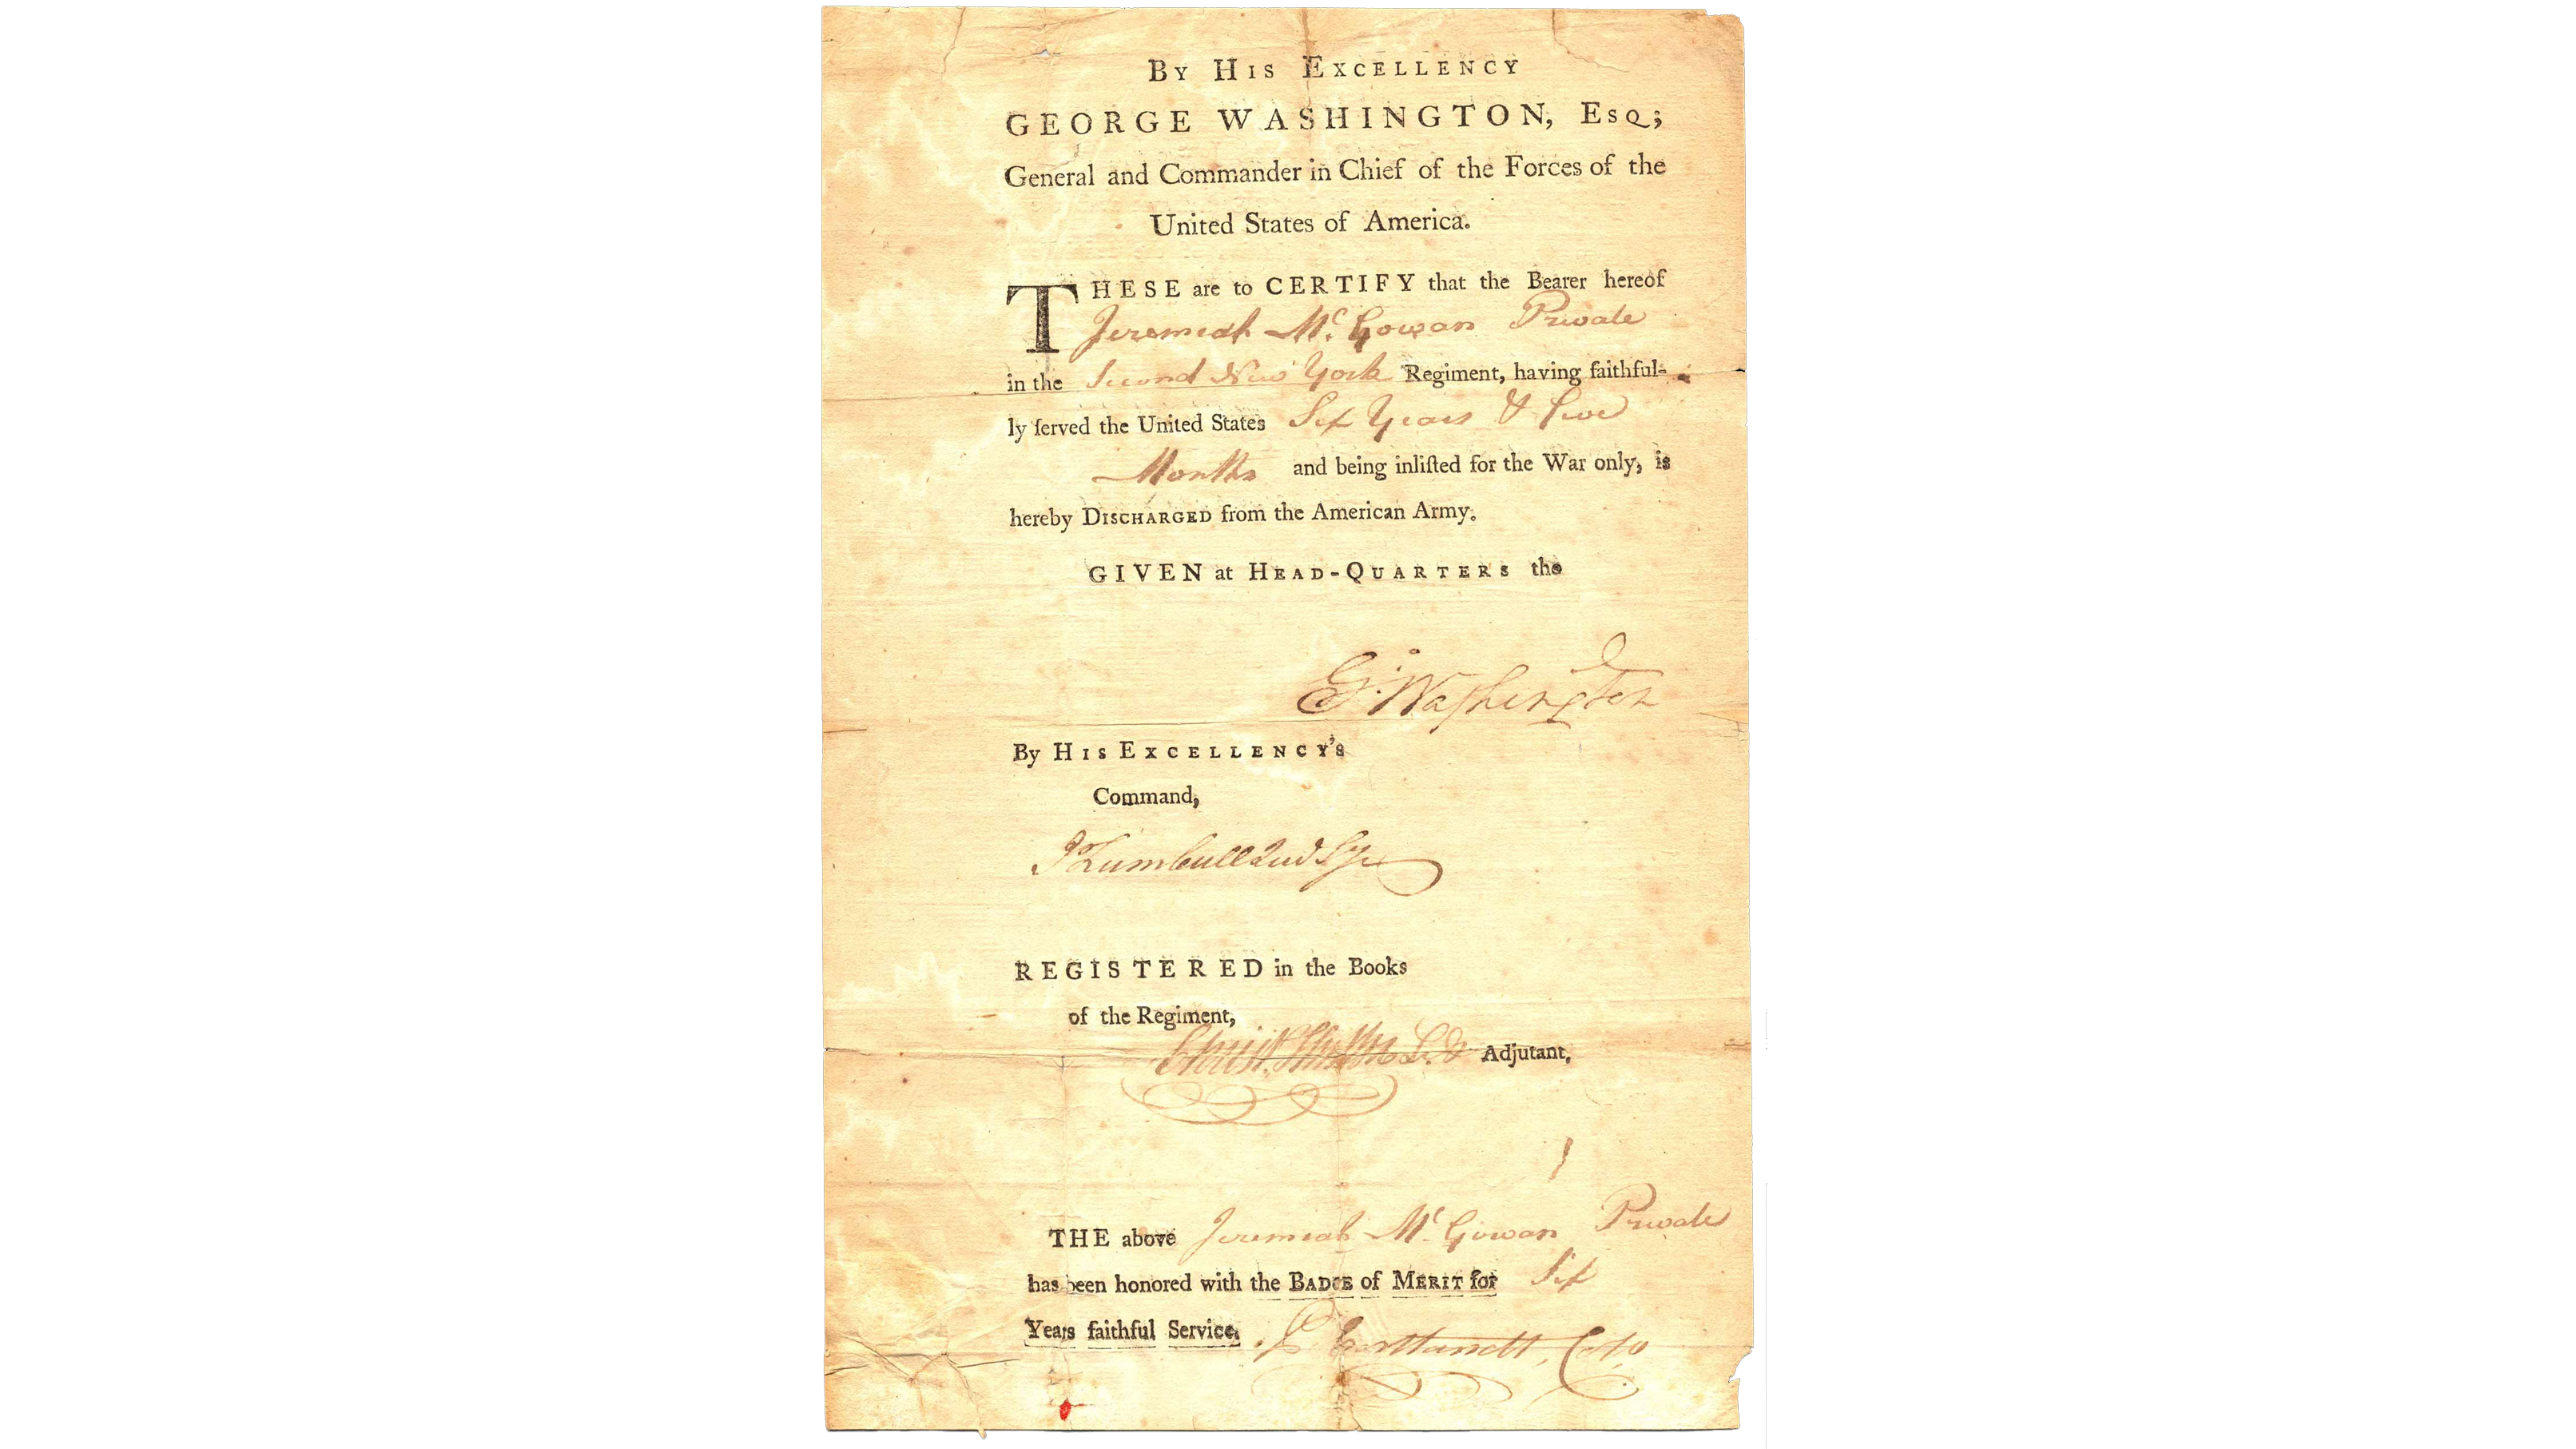 By His Excellency
GEORGE WASHINGTON, Esq;
General and Commander in Chief of the Forces of the
United States of America.
THESE are to CERTIFY that the Bearer hereof
Jeremiah Mc. Gowan Private
in the Second New York Regiment, having faithful-
ly ſerved the United States Six Years &
Months and being inliſted for the War only, is
hereby Discharged from the American Army.
GIVEN at Head-Quarters the
G:Washington
By His Excellency's
Command,
JTrumbull
REGISTERED in the Books
of the Regiment,
Adjutant.
THE above Jeremiah Mc Gowan Private
has been honored with the Badge of Merit for Six
Years faithful Service. P Cortlandt, Colo